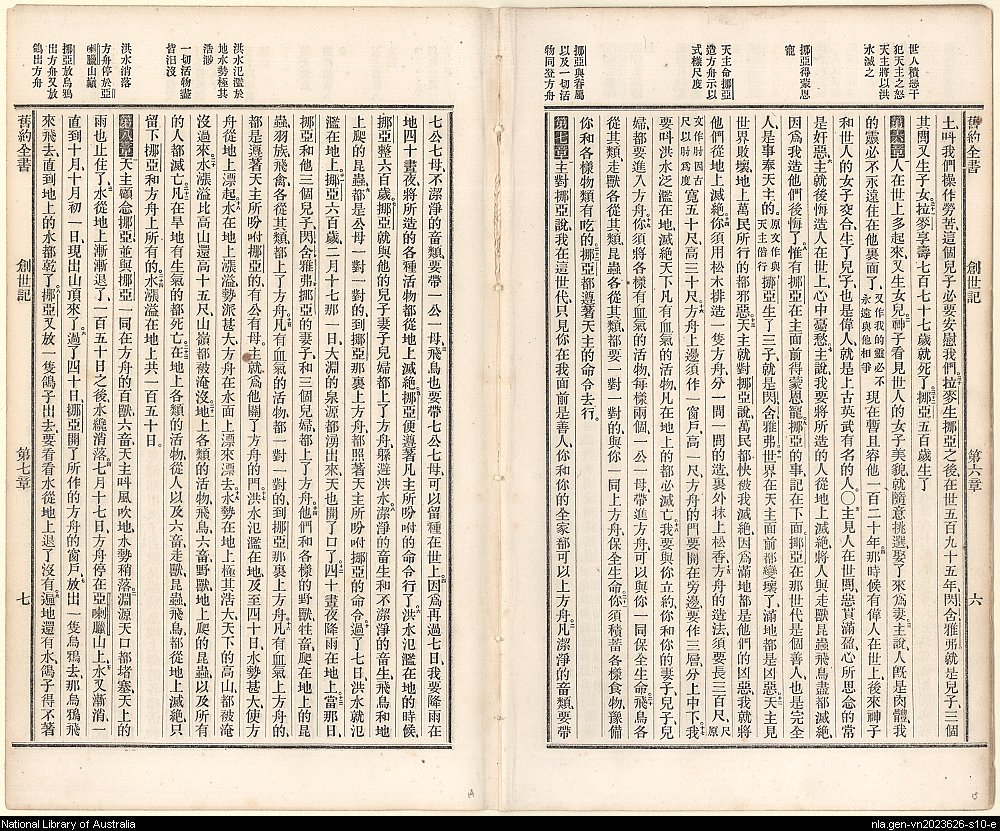 世人積惡干
犯天主之怒
天主將以洪
水滅之
挪亞得蒙恩
寵
天主命挪亞
造方舟示以
式樣尺度
挪亞與眷屬
以及一切活
物同登方舟
舊約全書 創世記 第六章 六
土、叫我們操作勞苦、這個兒子必要安慰我們、拉麥生挪亞之後、在世五百九十五年、閃含雅弗就是兒子、三個
其間又生子女、拉麥享壽七百七十七歲就死了、挪亞五百歲生了
第六章 人在世上多起來、又生女兒、神子看見世人的女子美貌、就隨意挑選、娶了來爲妻、主說、人旣是肉體、我
的靈必不永遠住在他裏面了、又作我的靈必不永遠與他相爭現在暫且容他一百二十年、那時候有偉人在世上、後來神子
和世人的女子交合、生了兒子、也是偉人、就是上古英武有名的人、〇主見人在世間惡貫滿盈、心所思念的常
是奸惡、主就後悔造人在世上、心中憂愁、主說、我要將所造的人從地上滅絕、將人與走獸昆蟲飛鳥、盡都滅絕、
因爲我造他們後悔了、惟有挪亞在主面前得蒙恩寵、挪亞的事記在下面、挪亞在那世代是個善人、也是完全
人、是事奉天主的、原文作與天主偕行挪亞生了三子、就是閃含雅弗、世界在天主面前都變壞了、滿地都是凶惡、天主見
世界敗壞、地上萬民所行的都邪惡、天主就對挪亞說、萬民都快被我滅絕、因爲滿地都是他們的凶惡、我就將
他們從地上滅絕、你須用松木排造一隻方舟、分一間一間的造、裏外抹上松香、方舟的造法、須要長三百尺、原
文作肘因古尺以肘爲度寬五十尺、高三十尺、方舟上邊須作一窗戶、高一尺、方舟的門要開在旁邊、要作三層、分上中下、我
要叫洪水泛濫在地、滅絕天下、凡有血氣的活物、凡在地上的都必滅亡、我要與你立約、你和你的妻子、兒子、兒
婦、都要進入方舟、你須將各樣有血氣的活物、每樣兩個、一公一母、帶進方舟、可以與你一同保全生命、飛鳥各
從其類、走獸各從其類、昆蟲各從其類、都要一對一對的與你一同上方舟、保全生命、你須積蓄各樣食物、豫備
你和各樣物類有吃的、挪亞都遵著天主的命令去行、
第七章 主對挪亞說、我在這世代、只見你在我面前是善人、你和你的全家都可以上方舟、凡潔淨的畜類、要帶
洪水氾濫於
地水勢極其
浩渺
一切活物盡
皆汩沒
洪水消落
方舟停於亞
喇臘山巔
挪亞放烏鴉
出方舟又放
鴿出方舟
七公七母、不潔淨的畜類、要帶一公一母、飛鳥也要帶七公七母、可以留種在世上、因爲再過七日、我要降雨在
地四十晝夜、將所造的各種活物都從地上滅絕、挪亞便遵著凡主所吩咐的命令行了、洪水氾濫在地的時候、
挪亞整六百歲、挪亞就與他的兒子妻子兒婦、都上了方舟、躲避洪水、潔淨的畜生、和不潔淨的畜生、飛鳥和地
上爬的昆蟲、都是公母一對一對的到挪亞那裏、上方舟、都照著天主所吩咐挪亞的命令、過了七日、洪水就氾
濫在地上、挪亞六百歲、二月十七那一日、大淵的泉源都湧出來、天也開了口了、四十晝夜降雨在地上、當那日、
挪亞和他三個兒子、閃含雅弗、挪亞的妻子、和三個兒婦、都上了方舟、他們和各樣的野獸牲畜、爬在地上的昆
蟲羽族飛禽、各從其類、都上了方舟、凡有血氣的活物、都一對一對的到挪亞那裏上方舟、凡有血氣上方舟的、
都是遵著天主所吩咐挪亞的、有公有母、主就爲他關了方舟的門、洪水氾濫在地、及至四十日、水勢甚大、使方
舟從地上漂起、水在地上漲溢、勢派甚大、方舟在水面上漂來漂去、水勢在地上極其浩大、天下的高山都被淹
沒過來、水漲溢比高山還高十五尺、山嶺都被淹沒、地上各類的活物、飛鳥六畜野獸、地上爬的昆蟲、以及所有
的人、都滅亡、凡在旱地有生氣的都死亡、在地上各類的活物、從人以及六畜、走獸昆蟲飛鳥、都從地上滅絕、只
留下挪亞和方舟上所有的、水漲溢在地上、共一百五十日、
第八章 天主顧念挪亞、並與挪亞一同在方舟的百獸六畜、天主叫風吹地、水勢稍落、淵源天口都堵塞、天上的
雨也止住了、水從地上漸漸退了、一百五十日之後、水纔消落、七月十七日、方舟停在亞喇臘山上、水又漸消、一
直到十月、十月初一日、現出山頂來了、過了四十日、挪亞開了所作的方舟的窗戶、放出一隻烏鴉去、那烏鴉飛
來飛去、直到地上的水都乾了、挪亞又放一隻鴿子出去、要看看水從地上退了沒有、遍地還有水、鴿子得不著
舊約全書 創世記 第七章 七
National Library of Australia
nla.gen-vn2023626-s10-e